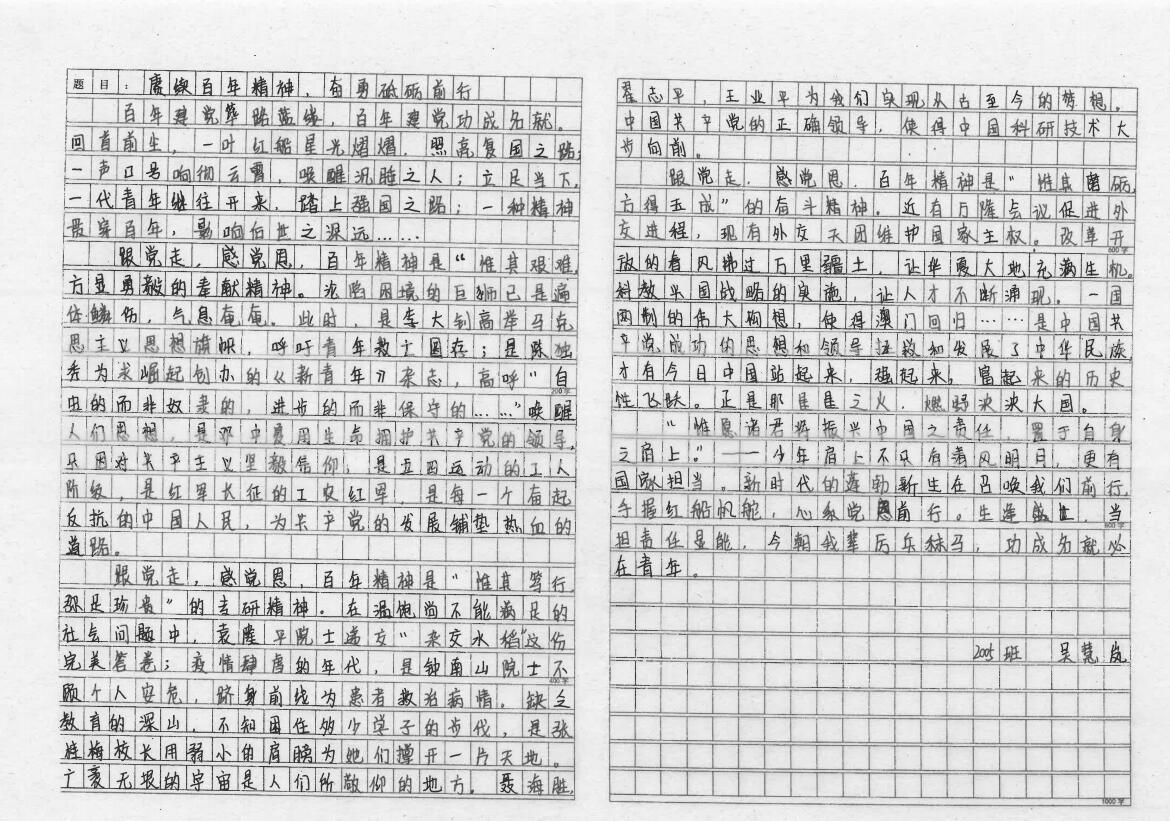 题目：赓续百年精神，奋勇砥砺前行
百年建党筚路蓝缕，百年建党功成名就。
回首前生，一叶红船星光熠熠，照亮复国之路；
一声口号响彻云霄，唤醒沉睡之人；立足当下，
一代青年继往开来，踏上强国之路；一种精神
贯穿百年，影响百世之深远……
跟党走，感党恩，百年精神是“惟其艰难，
方显勇毅的奉献精神。沦陷困境的巨狮已是遍
体鳞伤，气息奄奄。此时，是李大钊高举马克
思主义思想旗帜，呼吁青年救亡图存；是陈独
秀为求崛起创办的《新青年》杂志，高呼“自
由的而非奴隶的，进步的而非保守的……”唤醒
人们思想，是邓中夏用生命拥护共产党的领导，
只因对共产主义坚毅信仰，是五四运动的工人
阶级，是红军长征的工农红军，是每一个奋起
反抗的中国人民，为共产党的发展铺垫热血的
道路。
跟党走，感党恩，百年精神是“惟其笃行，
弥足珍贵”的专研精神。在温饱尚不能满足的
社会问题中，袁隆平院士递交“杂交水稻”这份
完美答卷；疫情肆虐的年代，是钟南山院士不
顾个人安危，跻身前线为患者救治病情。缺乏
教育的深山，不知困住多少学子的步伐，是张
桂梅校长用弱小的肩膀为她们撑开一片天地。
广袤无垠的宇宙是人们所敬仰的地方。聂海胜，
翟志平，王亚平为我们实现从古至今的梦想。
中国共产党的正确领导，使得中国科研技术大
步向前。
跟党走，感党恩，百年精神是“惟其磨砺，
方得玉成”的奋斗精神。近有万隆会议促进外
交进程，现有外交天团维护国家主权。改革开
放的春风拂过万里疆土，让华夏大地充满生机。
科教兴国战略的实施，让人才不断涌现。一国
两制的伟大构想，使得澳门回归……是中国共
产党成功的思想和领导拯救和发展了中华民族
才有今日中国站起来，强起来，富起来的历史
性飞跃。正是那星星之火，燃野泱泱大国。
“惟愿诸君将振兴中国之责任，置于自身
之肩上。”——少年肩上不只有着风明月，更有
国家担当。新时代的蓬勃新生在召唤我们前行，
手握红船帆舵，心系党恩前行。生逢盛世，当
担责任显能，今朝我辈厉兵秣马，功成名就必
在青年。
2005班 吴慧岚
200字
400字
600字
800字
1000字